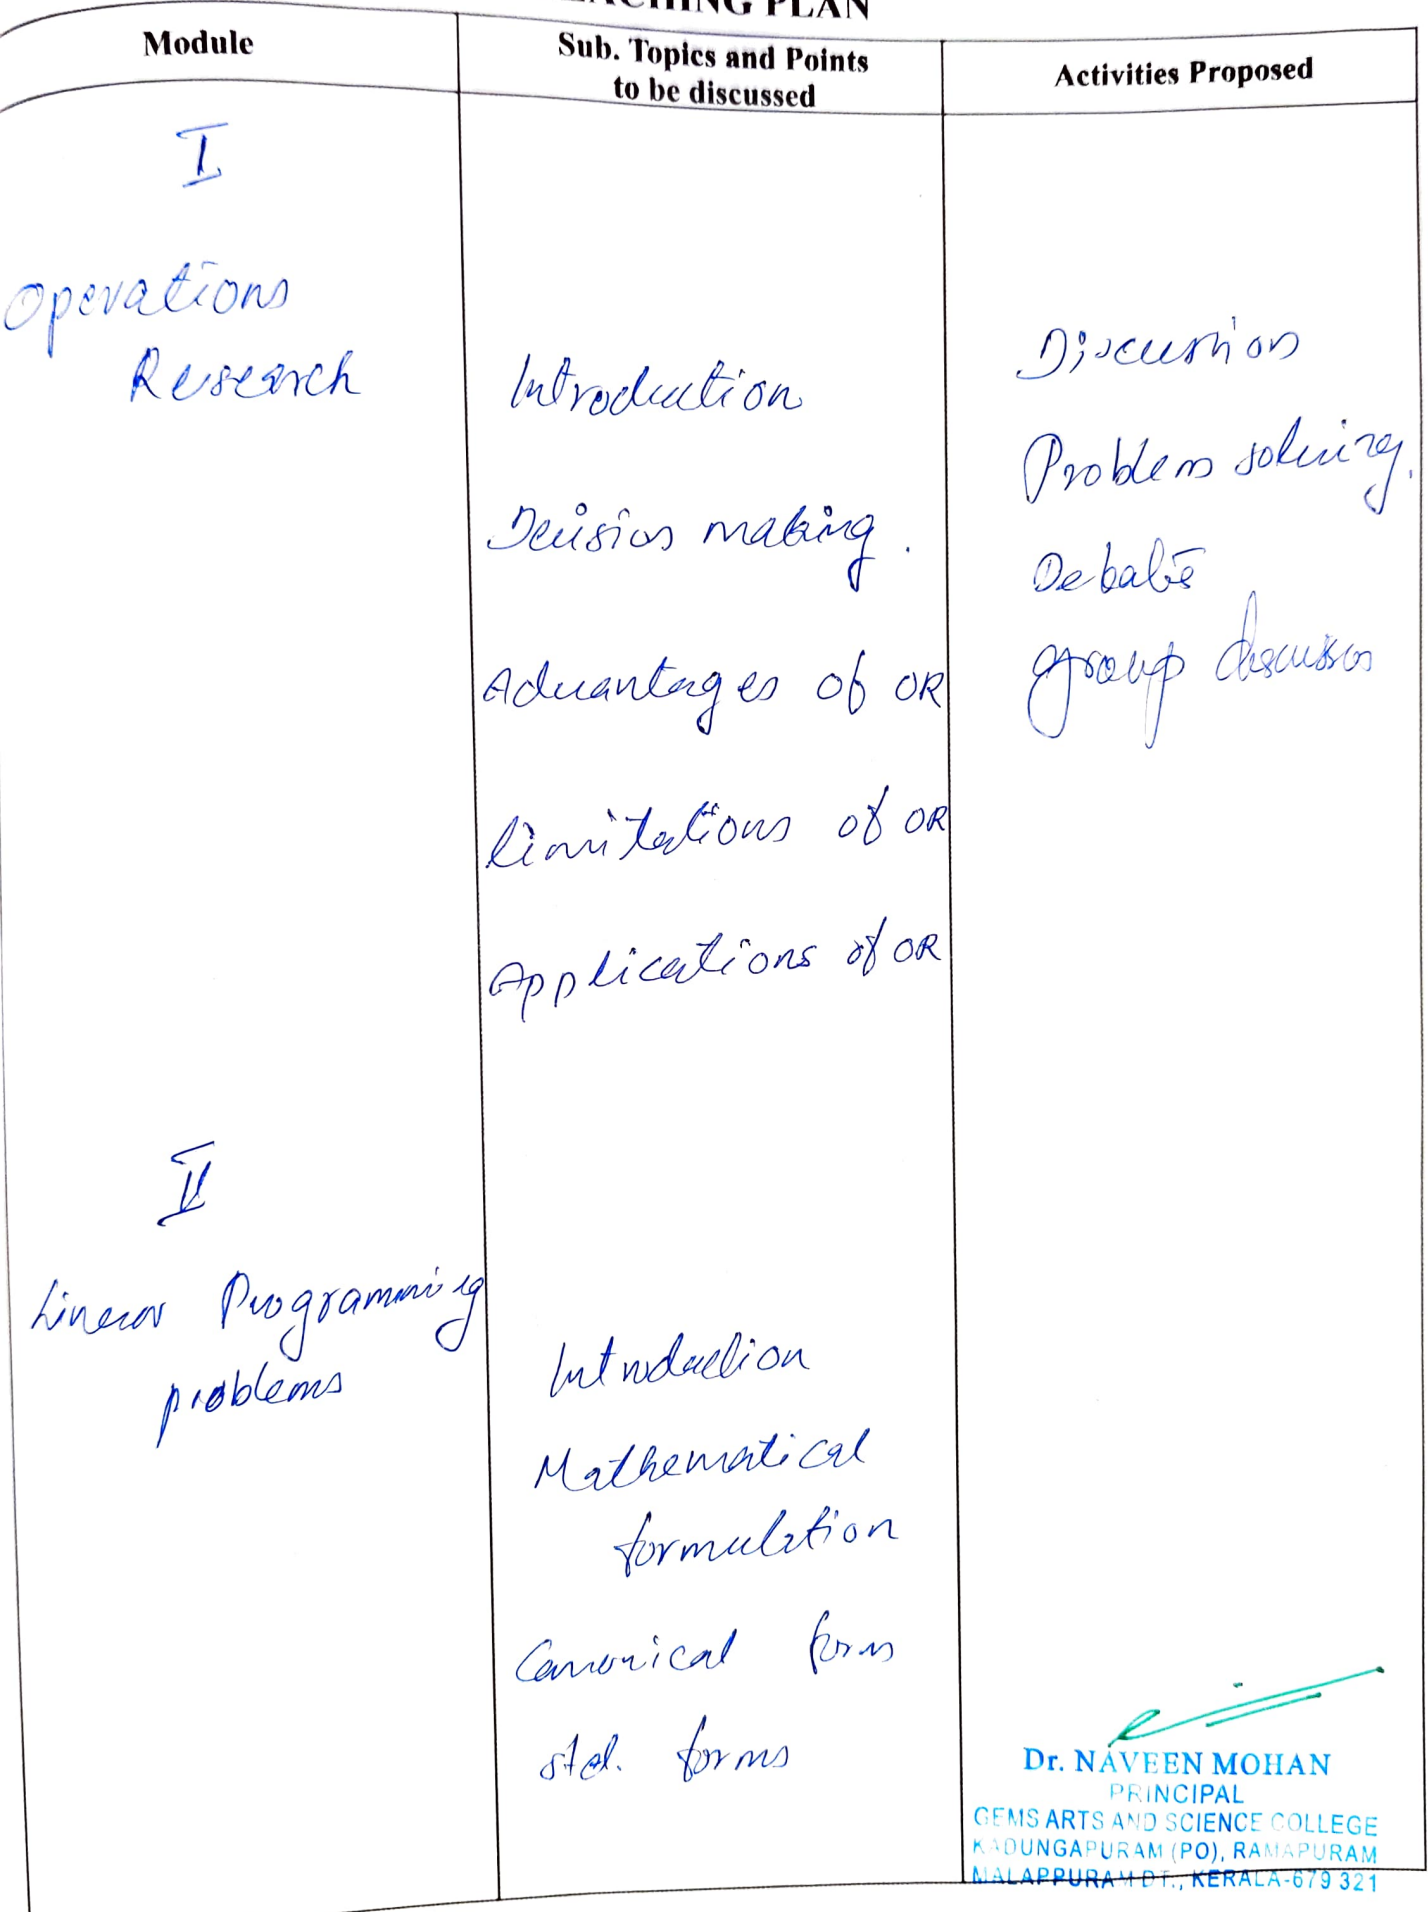 TEACHING PLAN
Module
Sub. Topics and Points
to be discussed
Activities Proposed
I
Operations
Research
Introduction
Decision making.
Advantages of OR
limitations of OR
Applications of OR
Discussion
Problem solving.
Debate
group discussion
II
Linear Programming
problems
Introduction
Mathematical
formulation
Canonical form
std. forms
Dr. NAVEEN MOHAN
PRINCIPAL
GEMS ARTS AND SCIENCE COLLEGE
KADUNGAPURAM (PO), RAMAPURAM
MALAPPURAM DT., KERALA-679 321